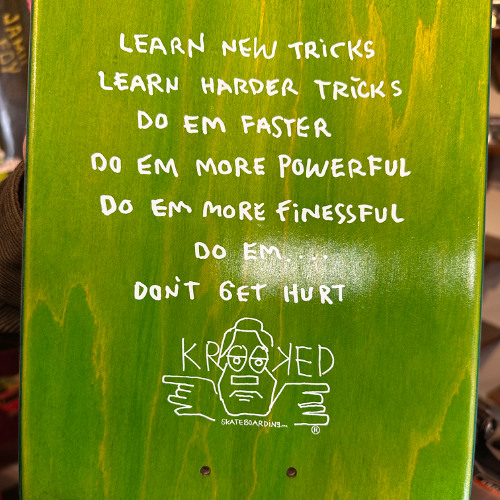 LEARN NEW TRICKS
LEARN HARDER TRICKS
DO EM FASTER
DO EM MORE POWERFUL
DO EM MORE FINESSFUL
DO EM....
DON'T GET HURT
KROOKED
SKATEBOARDING...
®